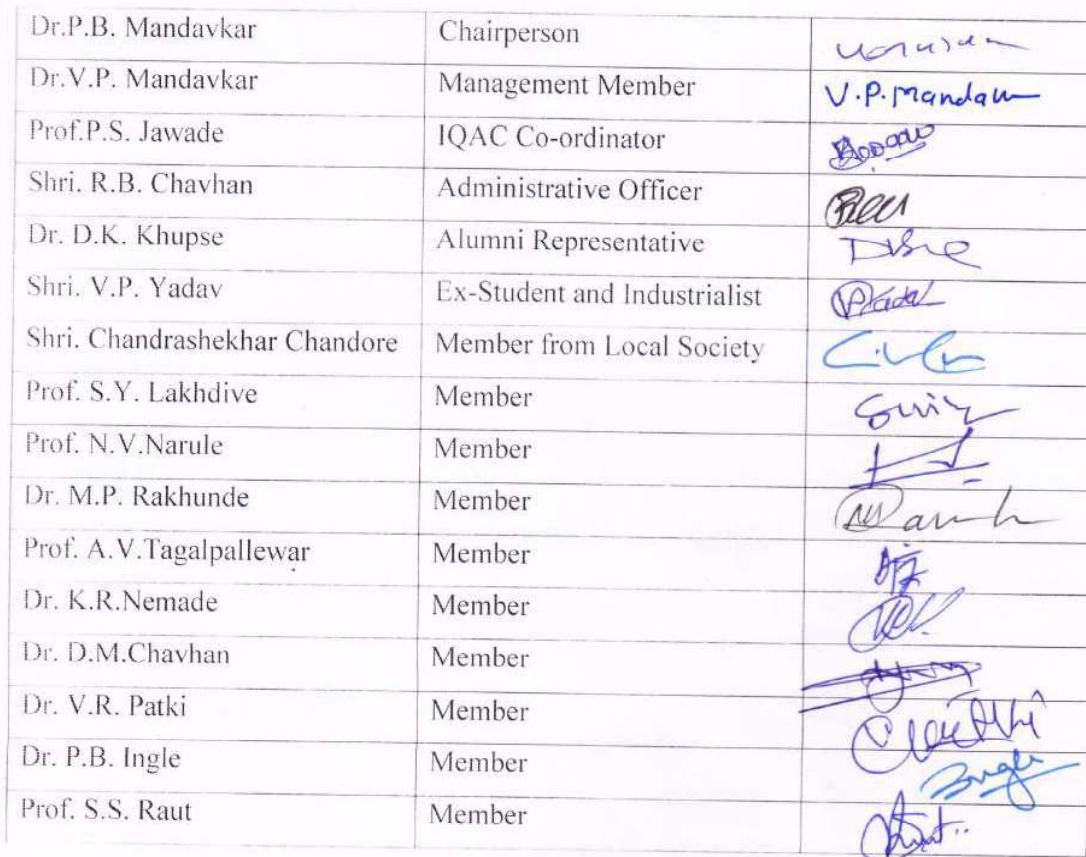 Dr.P.B. Mandavkar Chairperson
Dr.V.P. Mandavkar Management Member V.P.Mandavkar
Prof.P.S. Jawade IQAC Co-ordinator
Shri. R.B. Chavhan Administrative Officer
Dr. D.K. Khupse Alumni Representative
Shri. V.P. Yadav Ex-Student and Industrialist
Shri. Chandrashekhar Chandore Member from Local Society
Prof. S.Y. Lakhdive Member
Prof. N.V.Narule Member
Dr. M.P. Rakhunde Member
Prof. A.V.Tagalpallewar Member
Dr. K.R.Nemade Member
Dr. D.M.Chavhan Member
Dr. V.R. Patki Member
Dr. P.B. Ingle Member
Prof. S.S. Raut Member